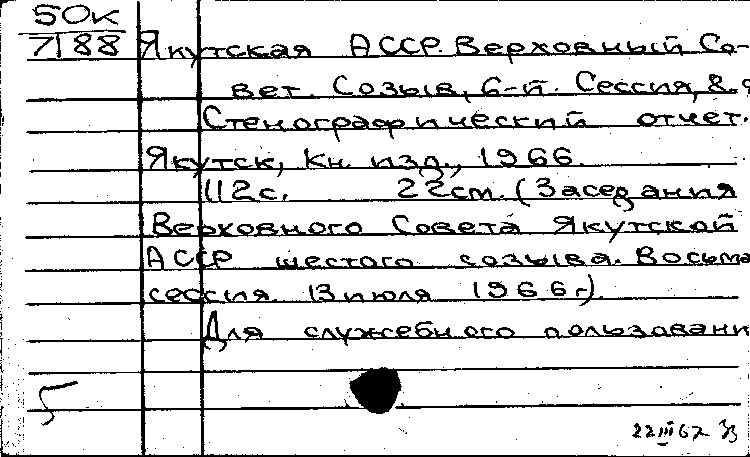 50к
7188 Якутская АССР. Верховный Со-
вет. Созыв, 6-й. Сессия, 8-я
Стенографический отчет.
Якутск, Кн. изд., 1966.
112с. 22см. (Заседания
Верховного Совета Якутской
АССР шестого созыва. Восьма
сессия. 13 июля 1966г).
Для служебного пользовани
5
22 III 67